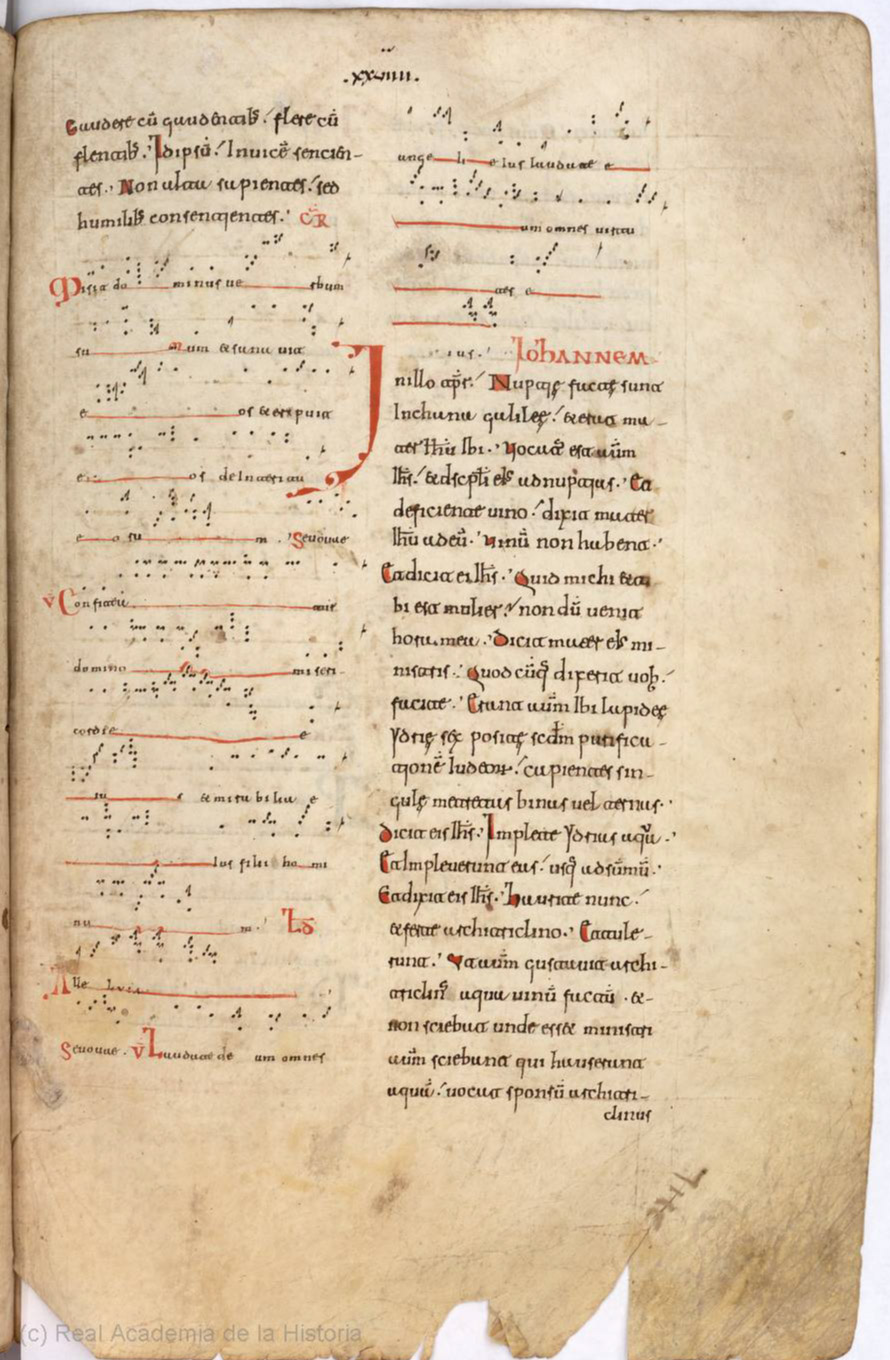 .xxiiii.
Gaudere cū gaudētib; flere cū
flentib;. Idipsū Inuicē sencien-
tes. Non alta sapientes. sed
humilib; consentientes. G̅R
Misit dominus uerbum
suum & sanauit
eos & eripuit
eos de Interitu
eorum. Seuouae
V Confiteantur
domino miseri-
cordie
eius & mirabilia e
ius filii homi
num.
Alleluia
Seuouae. V Laudate deum omnes
angeli eius laudate e
um omnes uirtu
tes e
ius. Iohannem
In illo tp̄r. Nuptię factę sunt
In chana galileę. & erat ma-
ter ihū Ibi. Uocat; est autm̄
ihs̄. & discpl̄i ei; ad nuptias. Et
deficiente uino. dixit mater
ihū ad eū. Uinū non habent.
Et dicit ei ihs̄. Quid michi & ti-
bi est mulier. nondū uenit
hora mea. Dicit mater ei; mi-
nistris. Quodcūq; dixerit uob;
facite. Erant autm̄ Ibi lapideę
ydrię sex positę scdm̄ purifica-
tionē Iudeor. capientes sin-
gulę metretas binas uel ternas.
Dicit eis ihs̄. Implete ydrias aqua.
Et Impleuerunt eas. usq; ad sūmū.
Et dixit eis ihs̄. Haurite nunc.
& ferte architriclino. Et tule-
runt. Ut autm̄ gustauit archi-
triclin; aqua uinū factā. &
non sciebat unde esset ministri
autm̄ sciebant qui hauserant
aquā. uocat sponsū architri-
clinus
(c) Real Academia de la Historia